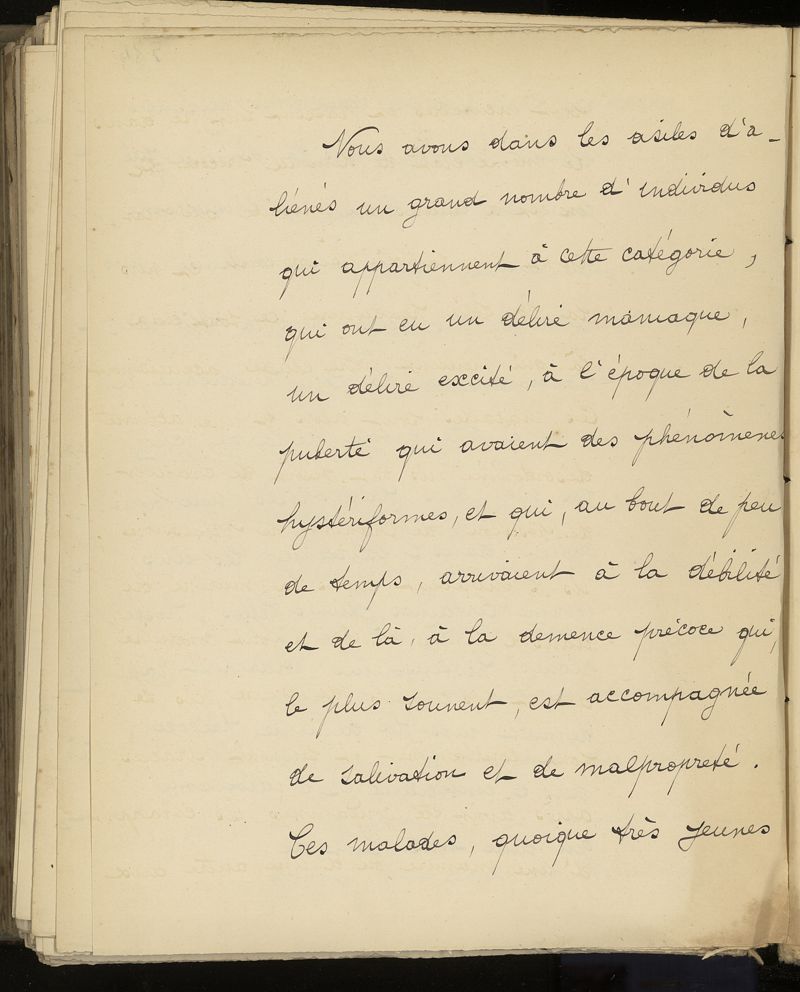 Nous avons dans les asiles d'a-
liénés un grand nombre d'individus
qui appartiennent à cette catégorie,
qui ont eu un délire maniaque,
un délire excité, à l'époque de la
puberté qui avaient des phénomènes
hystériformes, et qui, au bout de peu
de temps, arrivaient à la débilité
et de là, à la demence précoce qui,
le plus souvent, est accompagnée
de salivation et de malpropreté.
Ces malades, quoique très jeunes